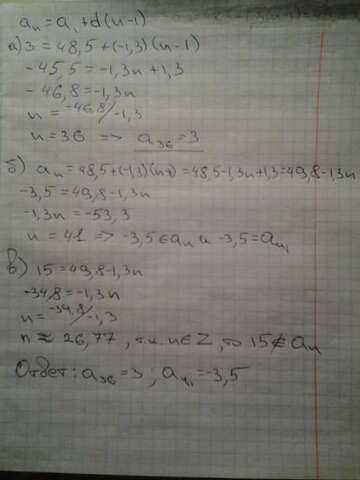 aₙ = a₁ + d(n-1)
а) 3 = 48,5 + (-1,3)(n-1)
-45,5 = -1,3n + 1,3
-46,8 = -1,3n
n = -46,8/-1,3
n = 36 => a₃₆ = 3
б) aₙ = 48,5 + (-1,3)(n-1) = 48,5 - 1,3n + 1,3 = 49,8 - 1,3n
-3,5 = 49,8 - 1,3n
-1,3n = -53,3
n = 41 => -3,5 ∈ aₙ и -3,5 = a₄₁
в) 15 = 49,8 - 1,3n
-34,8 = -1,3n
n = -34,8/-1,3
n ≈ 26,77, т.к. n ∈ Z, то 15 ∉ aₙ
Ответ: a₃₆ = 3; a₄₁ = -3,5